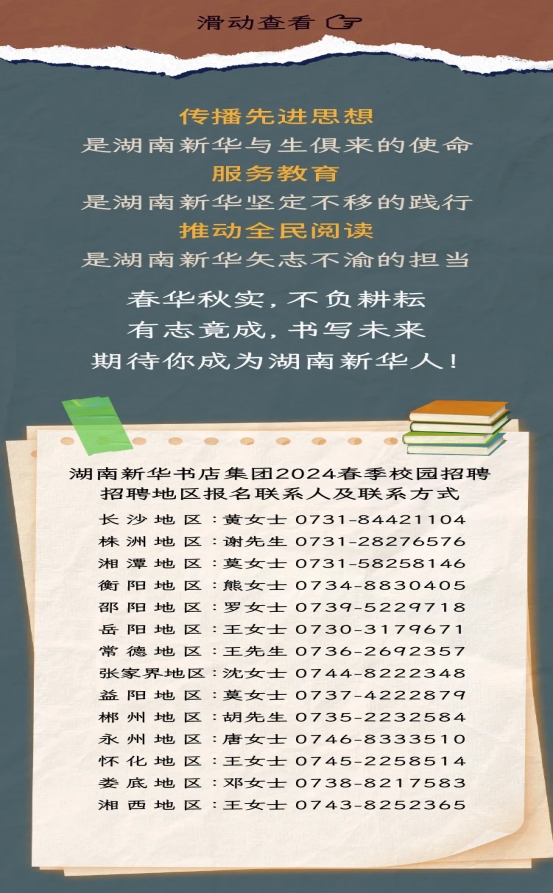 滑动查看
传播先进思想
是湖南新华与生俱来的使命
服务教育
是湖南新华坚定不移的践行
推动全民阅读
是湖南新华矢志不渝的担当
春华秋实，不负耕耘
有志竟成，书写未来
期待你成为湖南新华人！
湖南新华书店集团2024春季校园招聘
招聘地区报名联系人及联系方式
长沙地区：黄女士 0731-84421104
株洲地区：谢先生 0731-28276576
湘潭地区：莫女士 0731-58258146
衡阳地区：熊女士 0734-8830405
邵阳地区：罗女士 0739-5229718
岳阳地区：王女士 0730-3179671
常德地区：王先生 0736-2692357
张家界地区：沈女士 0744-8222348
益阳地区：莫女士 0737-4222879
郴州地区：胡先生 0735-2232584
永州地区：唐女士 0746-8333510
怀化地区：王女士 0745-2258514
娄底地区：邓女士 0738-8217583
湘西地区：王女士 0743-8252365